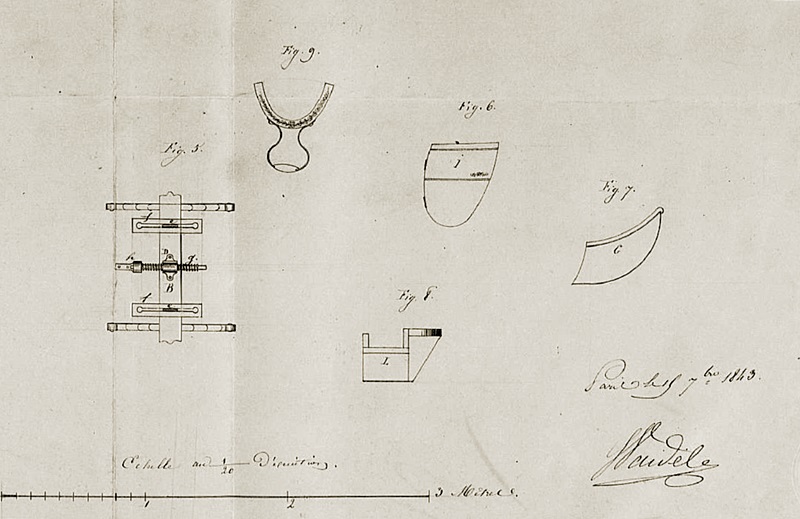 Fig. 9.
Fig. 6.
Fig. 5.
I
Fig. 7.
f
G
h
D
g.
B
Fig. 8.
f
L
Paris le 15 7bre 1843.
Echelle au 1/20 D'exécution.
1
2
3 Mètres.